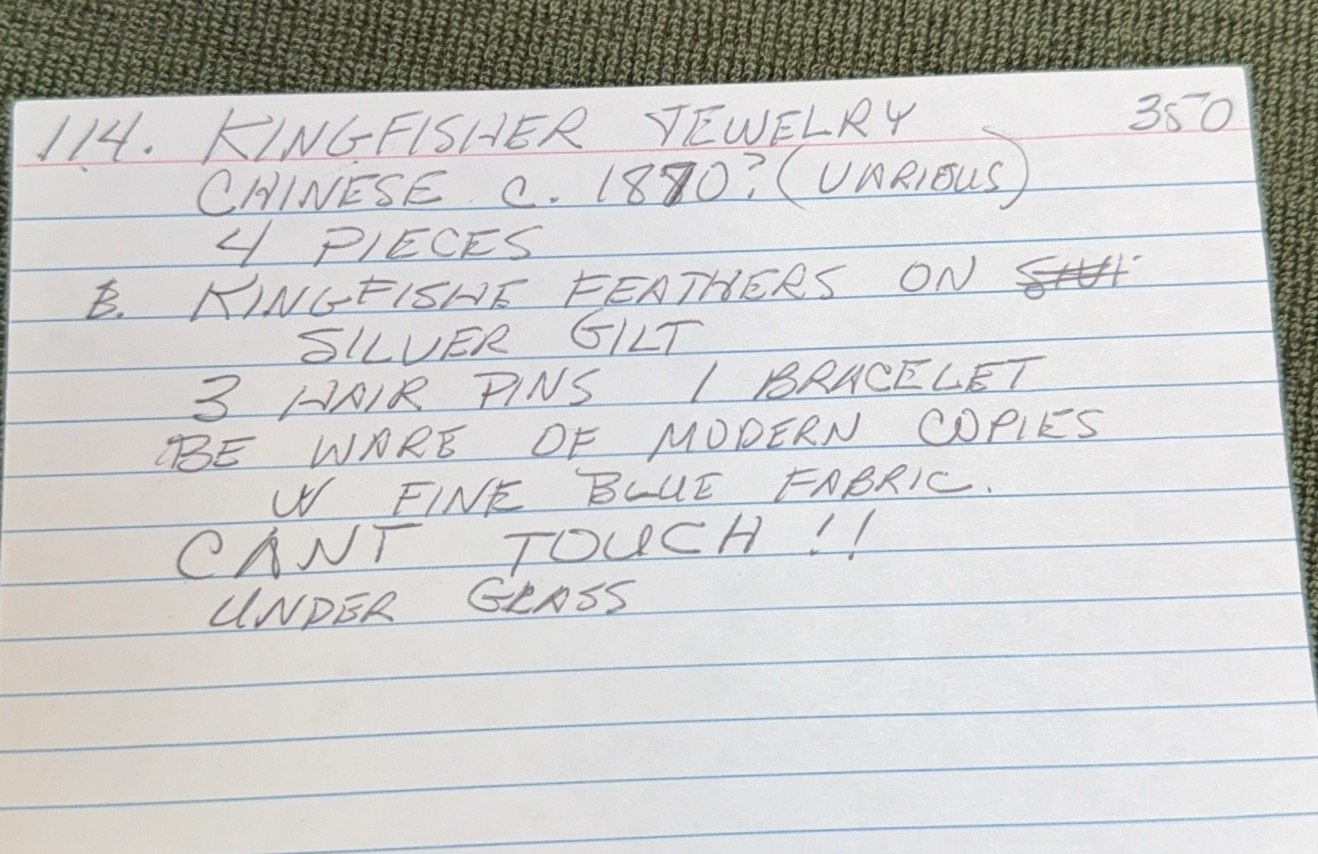 114. KINGFISHER JEWELRY 350
CHINESE c. 1870? (VARIOUS)
4 PIECES
B. KINGFISHE FEATHERS ON
SILVER GILT
3 HAIR PINS 1 BRACELET
BE WARE OF MODERN COPIES
W FINE BLUE FABRIC.
CANT TOUCH !!
UNDER GLASS